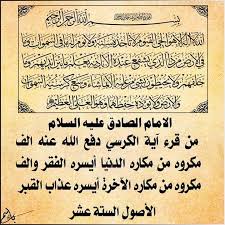 بسم الله الرحمن الرحيم
الله لا إله إلا هو الحي القيوم لا تأخذه سنة ولا نوم له ما في السموات وما
في الأرض من ذا الذي يشفع عنده إلا بإذنه يعلم ما بين أيديهم وما
خلفهم ولا يحيطون بشيء من علمه إلا بما شاء وسع كرسيه السموات
والأرض ولا يؤده حفظهما وهو العلي العظيم
الامام الصادق عليه السلام
من قرء آية الكرسي دفع الله عنه الف
مكروه من مكاره الدنيا أيسره الفقر والف
مكروه من مكاره الآخرة أيسره عذاب القبر
الأصول الستة عشر